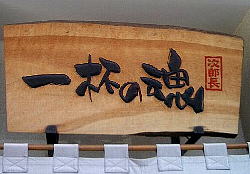 一杯の魂
次郎長